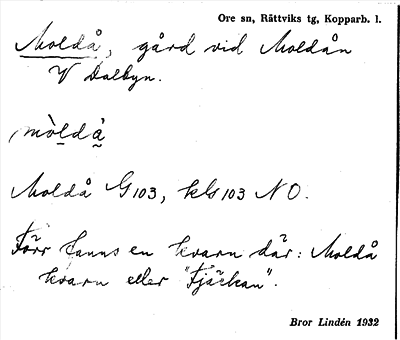 Ore sn, Rättviks tg, Kopparb. l.
Moldå, gård vid Moldån
V Dalbyn.
mòldå̀
Moldå G103, kls103 NO.
Förr fanns en kvarn där: Moldå
kvarn eller "Fjäckan".
Bror Lindén 1932